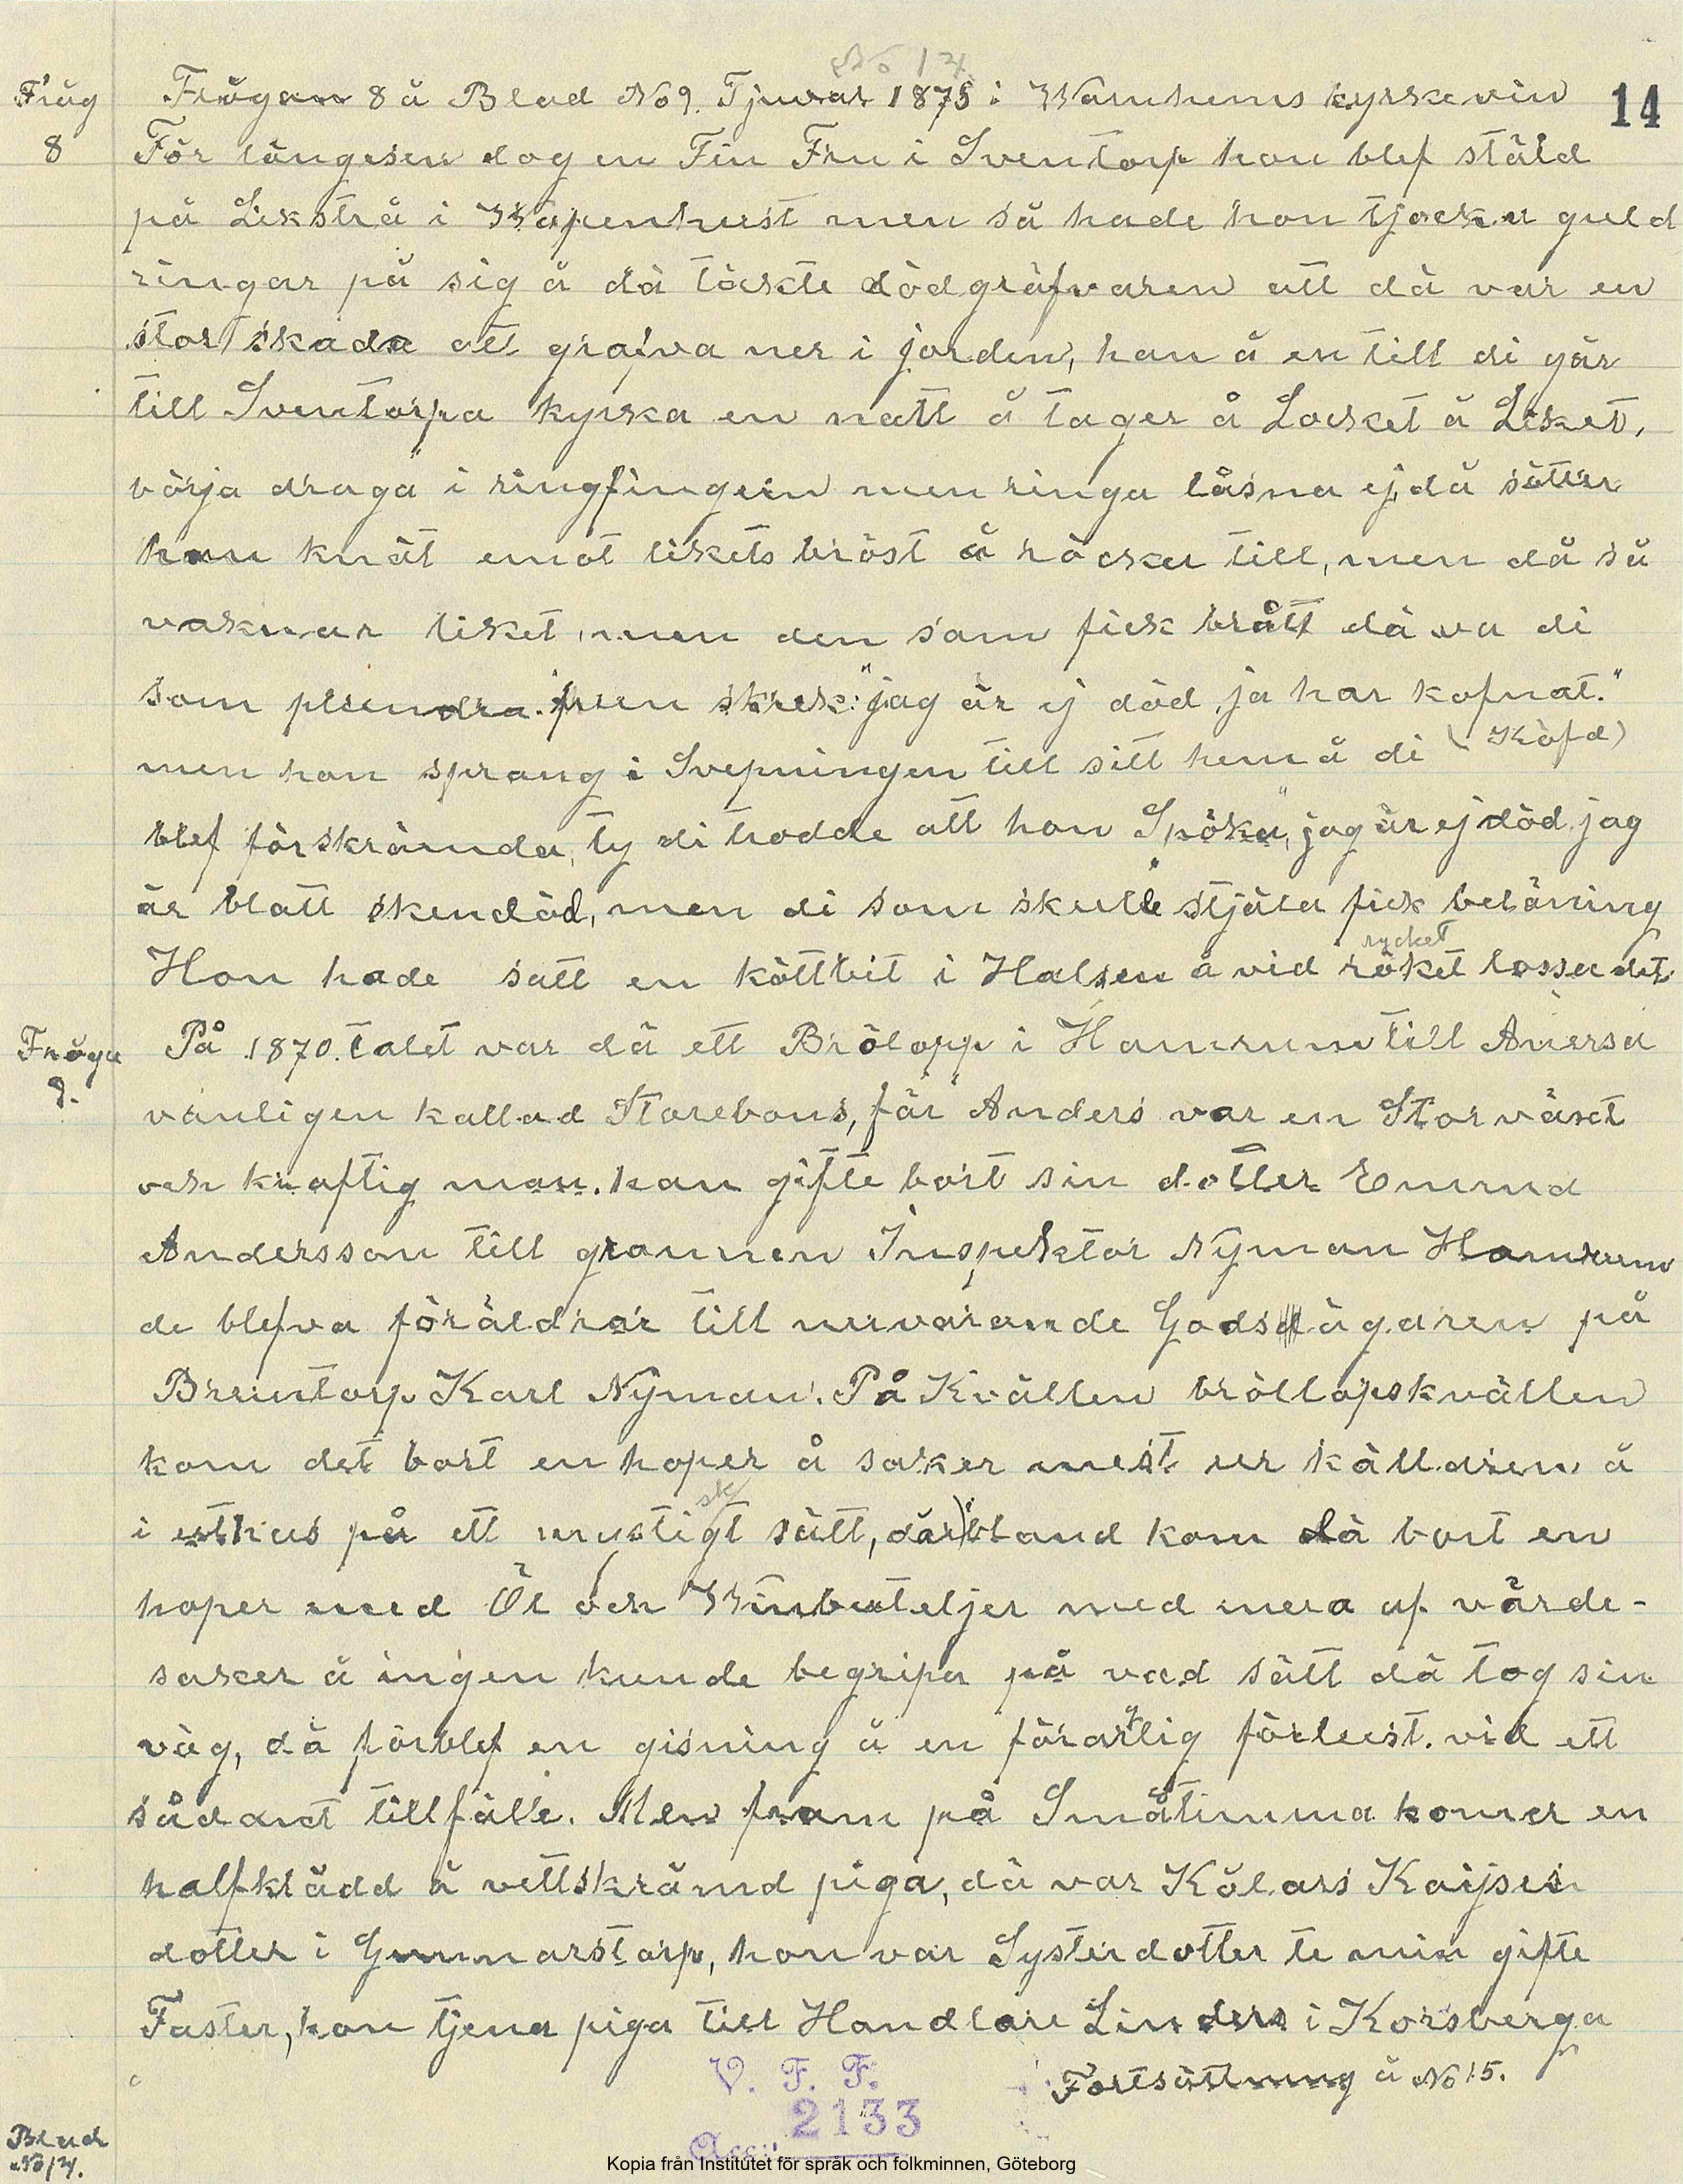 No 14.
14
Fråg Frågan 8 å Blad No 9. Tjuvar 1875 i Warnhems kyrka vin
8 För längesen dog en Fin Fru i Sventorp hon blef stäld
på Likstrå i Wapenhust men så hade hon tjocka guld
ringar på sig å dä täckte dödgräfvaren att dä var en
stor skada att grafva ner i jorden, han å en till di går
till Sventorpa kyrka en natt å tager å Locket å Liket,
börja draga i ringfingern men ringa låsna ej, då sätter
han knät emot likets bröst å röcker till, men då så
vaknar liket, men den som fick brått dä va di
som plundra. frun skrek: "jag är ej död, ja har kofnat."
(Köfd)
men hon sprang i Svepningen till sitt hem å di
blef förskrämda, ty di trodde att hon Spöka, "jag är ej död, jag
är blatt skendöd, men di som skulle stjäla fick belöning
rycket
Hon hade satt en köttbit i Halsen å vid röket lossa det.
Fråga På 1870. talet var dä ett Brölopp i Hamrum till Anersa
9. vanligen kallad Storebons, får Anders var en Storväxt
och kraftig man. han gifte bort sin dotter Emma
Andersson till grannen Inspektor Nyman Hamrum
de blefva föräldrar till nuvarande Godsägaren på
Bruntorp Karl Nyman. På Kvällen bröllopskvällen
kom det bort en hoper å saker mest ur källaren å
sk
i uthus på ett mystigt sätt, däribland kom dä bort en
hoper med Öl och Winbuteljer med mera af värde-
saker å ingen kunde begripa på vad sätt dä tog sin
väg, dä förblef en gisning å en förarlig förlust. vid ett
sådant tillfälle. Men fram på Småtimma komer en
halfklädd å vettskrämd piga, dä var Kölars Kajses
dotter i Gunnarstorp, hon var Systerdotter te min gifte
Faster, hon tjena piga till Handlare Linders i Korsberga
Fortsättning å No 15.
V. F. F.
2133
Acc:
Blad
No 14.
Kopia från Institutet för språk och folkminnen, Göteborg